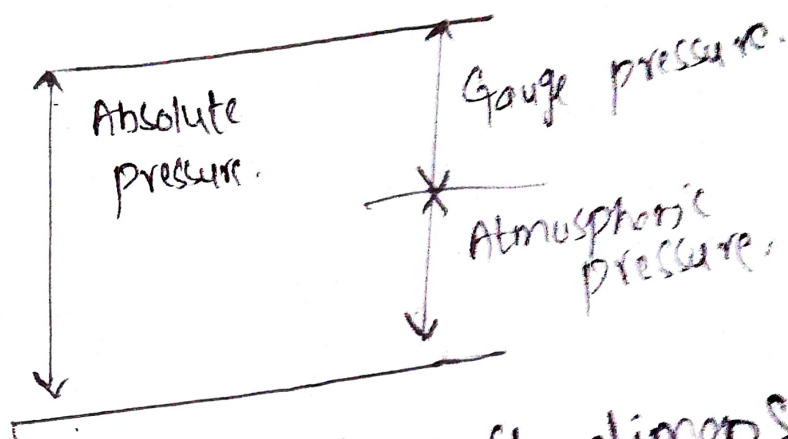 Absolute
pressure.
Gauge pressure.
Atmospheric
pressure.